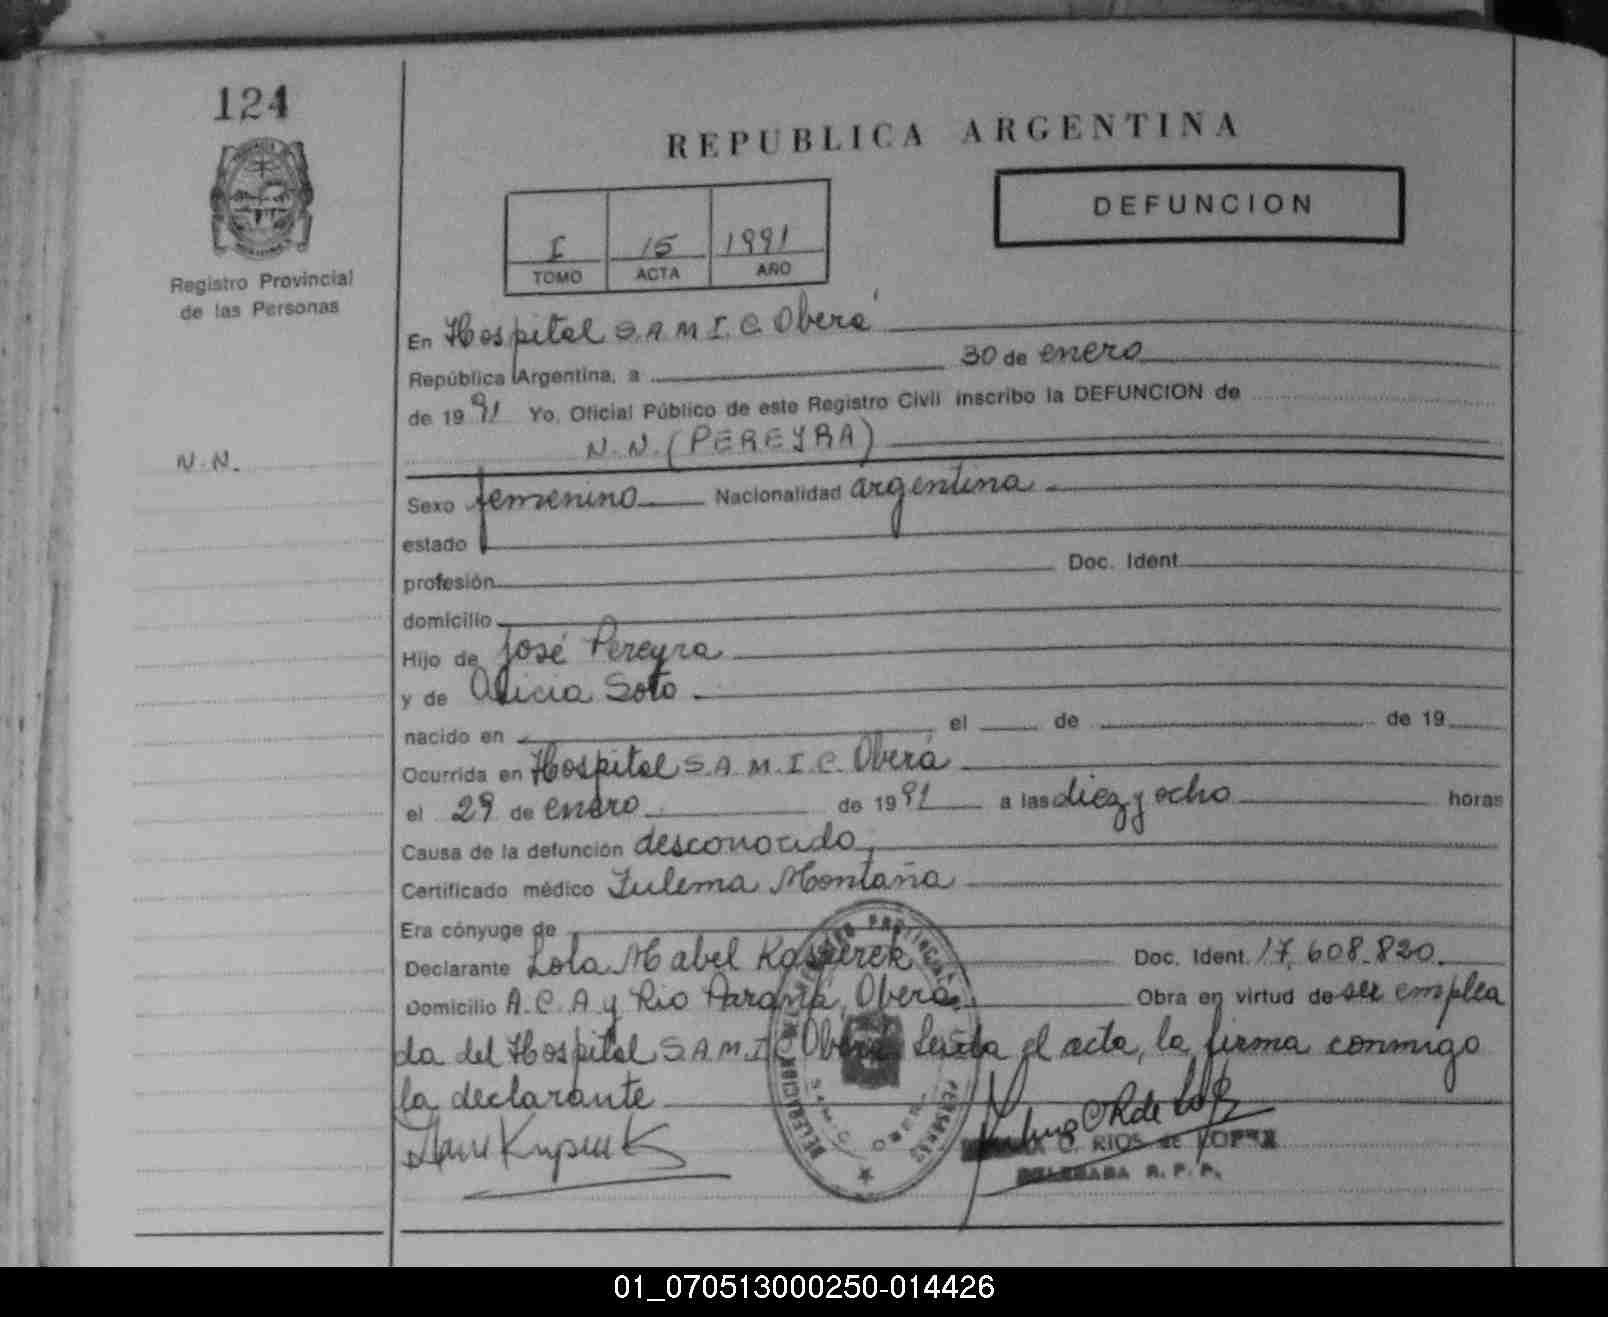 124
REPUBLICA ARGENTINA
DEFUNCION
I 15 1991
TOMO ACTA AÑO
Registro Provincial
de las Personas
En Hospital S.A.M.I.C. Oberá
República Argentina, a 30 de enero
de 1991 Yo, Oficial Público de este Registro Civil inscribo la DEFUNCION de
N.N. (PEREYRA)
N.N.
Sexo femenino Nacionalidad argentina
estado
profesión Doc. Ident.
domicilio
Hijo de José Pereyra
y de Alicia Soto
nacido en el de de 19
Ocurrida en Hospital S.A.M.I.C. Oberá
el 29 de enero de 1991 a las diez y ocho horas
Causa de la defunción desconocido
Certificado médico Zulema Montaña
Era cónyuge de
Declarante Lola Mabel Doc. Ident. 17.608.820
Domicilio A.C.A. y Rio Paraná, Oberá Obra en virtud de ser emplea
da del Hospital S.A.M.I.C. Oberá Leída el acta, la firma conmigo
la declarante
C. RIOS de LOPEZ
DELEGADA R.P.P.
01_070513000250-014426